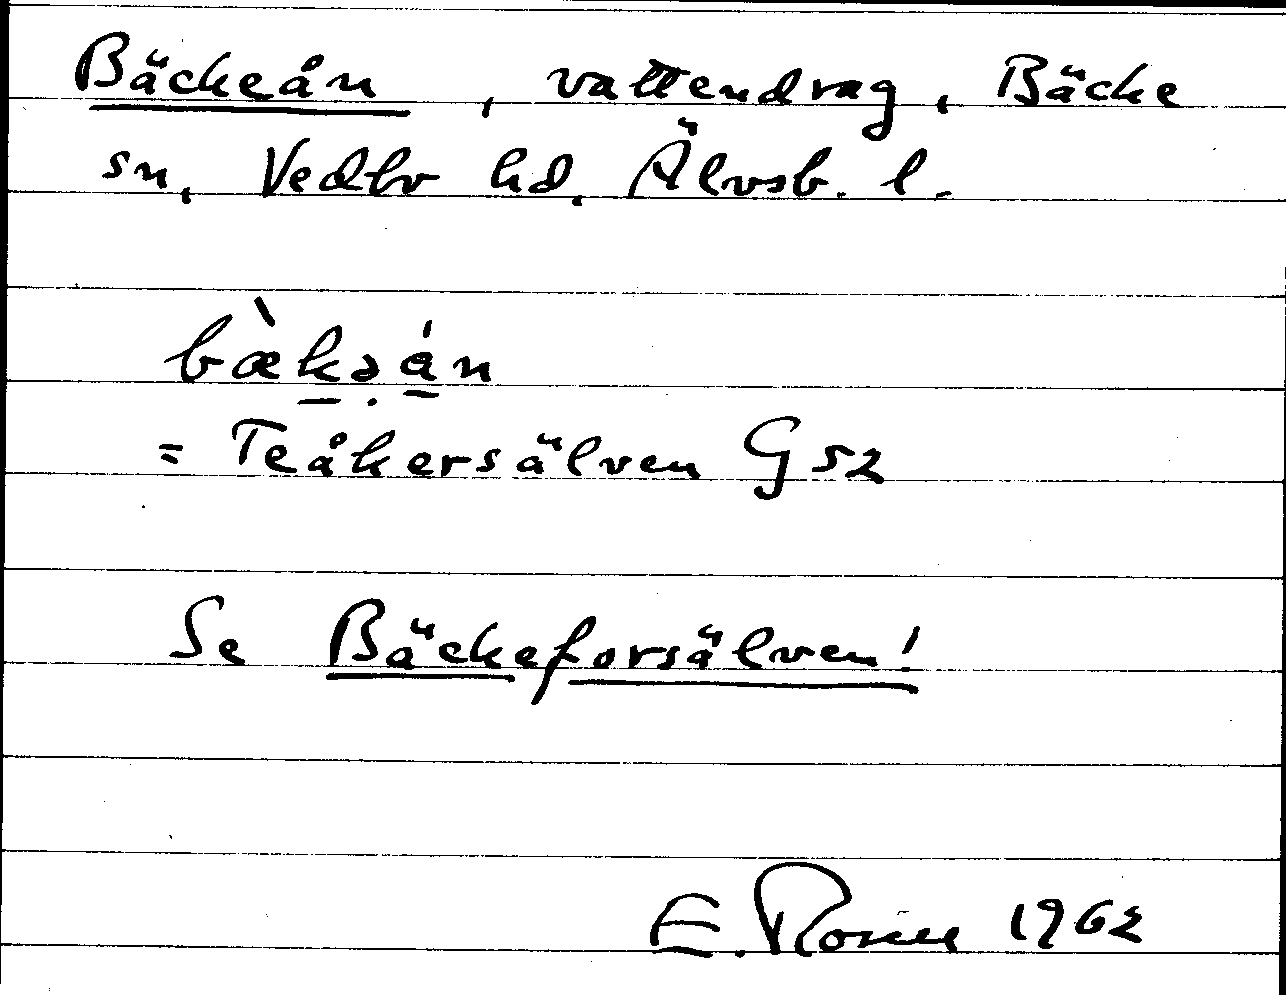 Bäckeån, vattendrag, Bäcke
sn, Vedbo hd, Älvsb. l.
bæ̀kəán
= Teåkersälven G52
Se Bäckeforsälven!
E. Rosén 1962